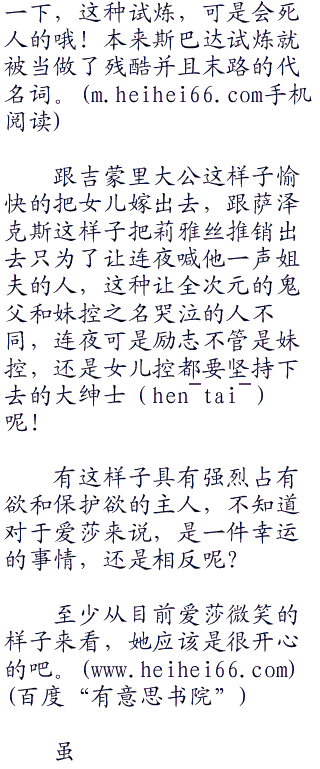 一下，这种试炼，可是会死
人的哦！本来斯巴达试炼就
被当做了残酷并且末路的代
名词。(m.heihei66.com手机
阅读)
跟吉蒙里大公这样子愉
快的把女儿嫁出去，跟萨泽
克斯这样子把莉雅丝推销出
去只为了让连夜喊他一声姐
夫的人，这种让全次元的鬼
父和妹控之名哭泣的人不
同，连夜可是励志不管是妹
控，还是女儿控都要坚持下
去的大绅士（hen¯tai¯）
呢！
有这样子具有强烈占有
欲和保护欲的主人，不知道
对于爱莎来说，是一件幸运
的事情，还是相反呢？
至少从目前爱莎微笑的
样子来看，她应该是很开心
的吧。(www.heihei66.com)
(百度“有意思书院”)
虽